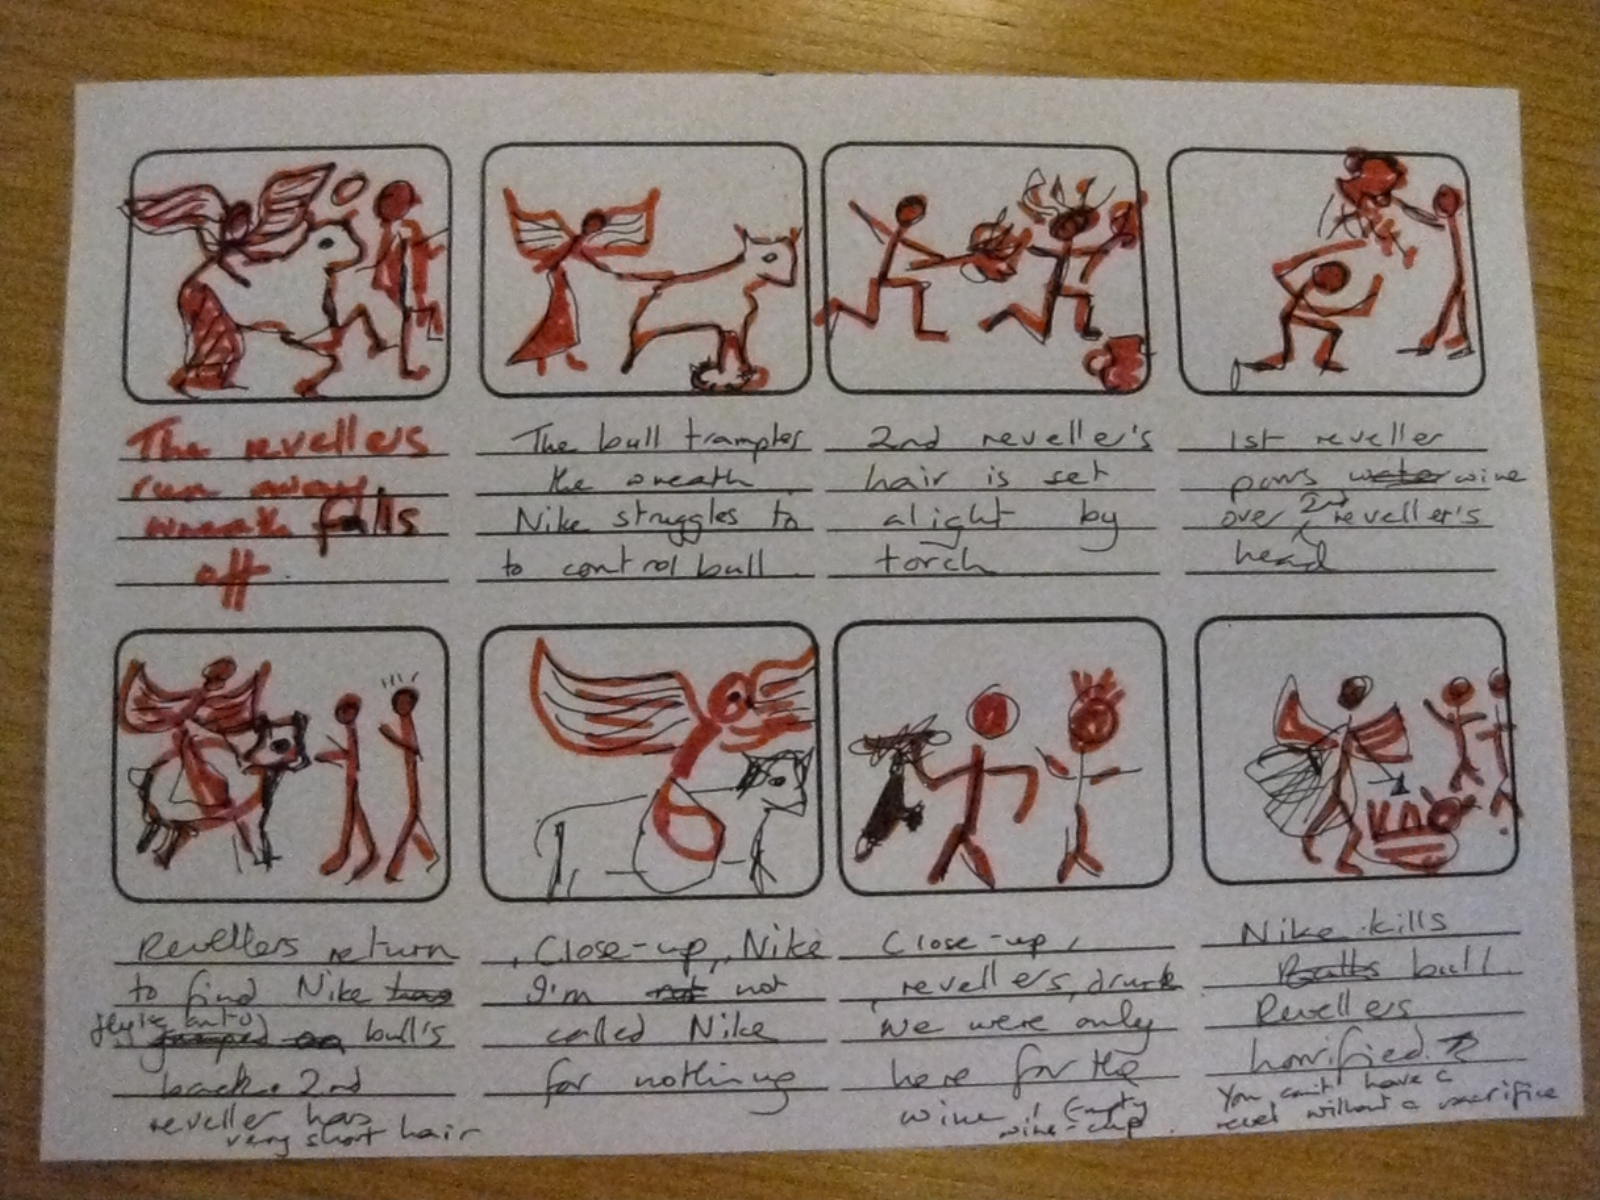 The revellers
run away
wreath falls
off.
The bull tramples
the wreath
Nike struggles to
to control bull.
2nd reveller's
hair is set
alight by
torch
1st reveller
pours water wine
over 2nd reveller's
head
Revellers return
to find Nike has
flying onto jumped on bull's
back. 2nd
reveller has
very short hair
Close-up, Nike
I'm not not
called Nike
for nothing
Close-up,
revellers, drunk
We were only
here for the
wine! Empty
wine-cup.
Nike kills
Bulls bull.
Revellers
horrified.
You can't have a
revel without a sacrifice